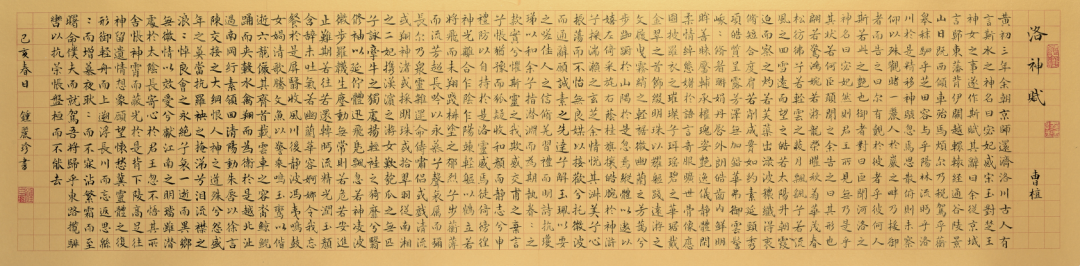 洛神賦
曹植
黃初三年余朝京師還濟洛川古人有
言斯水之神名曰宓妃感宋玉對楚王
神女之事遂作斯賦其詞曰余從京域
言歸東藩背伊闕越轘轅經通谷陵景
山日既西傾車殆馬煩爾乃稅駕乎蘅
皋秣駟乎芝田容與乎陽林流眄乎洛
川於是精移神駭忽焉思散俯則未察
仰以殊觀睹一麗人於巖之畔乃援御
者而告之曰爾有覿於彼者乎彼何人
斯若此之豔也御者對曰臣聞河洛之
神名曰宓妃然則君王所見無乃是乎
其狀若何臣願聞之余告之曰其形也
翩若驚鴻婉若游龍榮曜秋菊華茂春
松彷彿兮若輕雲之蔽月飄颻兮若流
風之迴雪遠而望之皎若太陽升朝霞
迫而察之灼若芙蕖出淥波穠纖得衷
脩短合度肩若削成腰如約素延頸秀
項皓質呈露芳澤無加鉛華弗御雲髻
峨峨脩眉聯娟丹唇外朗皓齒內鮮明
眸善睞靨輔承權瓌姿艷逸儀靜體閑
柔情綽態媚於語言奇服曠世骨像應
圖披羅衣之璀璨兮珥瑤碧之華琚戴
金翠之首飾綴明珠以耀軀踐遠游之
文履曳霧綃之輕裾微幽蘭之芳藹兮
步踟躕於山隅於是忽焉縱體以遨以
嬉左倚采旄右蔭桂旗攘皓腕於神滸
兮采湍瀨之玄芝余情悅其淑美兮心
振蕩而不怡無良媒以接歡兮托微波
而通辭願誠素之先達兮解玉珮以要
之嗟佳人之信脩羌習禮而明詩抗瓊
珶以和予兮指潛淵而為期執眷:之
款實兮懼斯靈之我欺感交甫之棄言
兮悵猶豫而狐疑收和顏而靜志兮申
禮防以自持於是洛靈感焉徙倚徬徨
神光離合乍陰乍陽竦輕軀以鶴立若
將飛而未翔踐椒塗之郁烈兮步蘅薄
而流芳超長吟以永慕兮聲哀厲而彌
長爾乃眾靈雜遝命儔嘯侶或戲清流
或翔神渚或採明珠或拾翠羽從南湘
之二妃攜漢濱之游女歎匏瓜之無匹
兮詠牽牛之獨處揚輕袿之猗靡兮翳
修袖以延佇體迅飛鳧飄忽若神陵波
微步羅襪生塵動無常則若危若安進
止難期若往若還轉眄流精光潤玉顏
含辭未吐氣若幽蘭華容婀娜令我忘
餐於是屏翳收風川后靜波馮夷鳴鼓
女媧清歌騰文魚以警乘鳴玉鸞以偕
逝六龍儼其齊首載雲車之容裔鯨鯢
踴而夾轂水禽翔而為衛於是越北沚
過南岡紆素領迴清陽動朱唇以徐言
陳交接之大綱恨人神之道殊兮怨盛
年之莫當抗羅袂之掩涕兮淚流襟之
浪:悼良會之永絕兮哀一逝而異鄉
無微情以效愛兮獻江南之明璫雖潛
處於太陰長寄心於君王忽不悟其所
舍悵神宵而蔽光於是背下陵高足往
神留遺情想象顧望懷愁冀靈體之復
形御輕舟而上溯浮長川而忘返思綿
:而增慕夜耿:而不寐沾繁霜而至
曙命僕夫而就駕吾將歸乎東路攬騑
轡以抗策悵盤桓而不能去
己亥春日 鍾 珍書